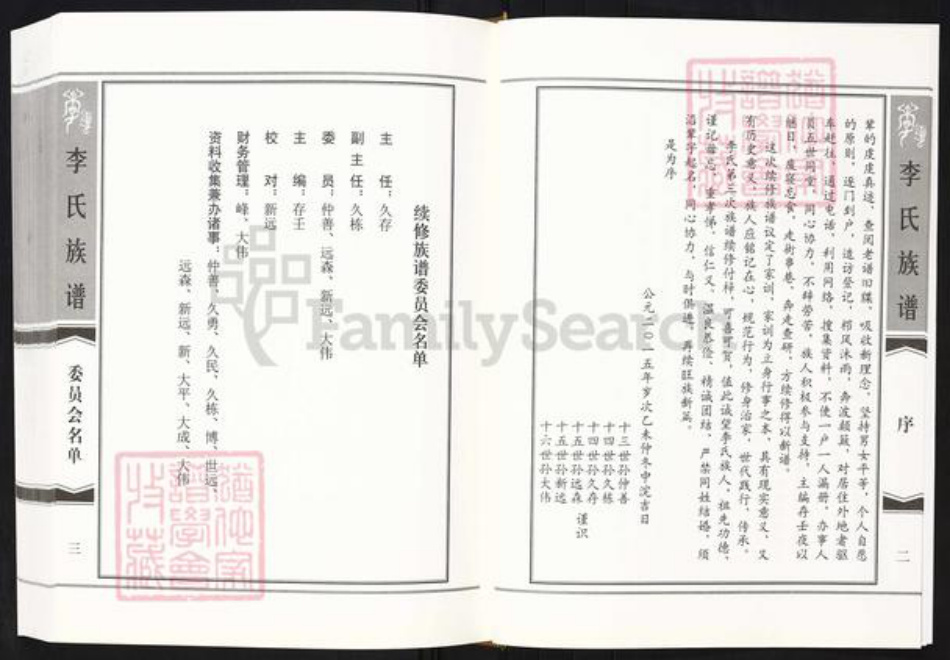 李氏族谱
序
二
辈的虔虔真迹，查阅老谱旧牒，吸收新理念，坚持男女平等，个人自愿
的原则，逐门到户，造访登记，栉风沐雨，奔波颠簸，对居住外地者驱
车赶往，通过电话，利用网络，搜集资料，不使一户一人漏册，办事人
员五世同堂，同心协力，不辞劳苦，族人积极参与支持，主编存壬夜以
继日，废寝忘食，走街串巷，奔走查研，方续修得以新谱。
这次续修族谱议定了家训，家训为立身行事之本，具有现实意义，又
有历史意义，族人应铭记在心，规范行为，修身治家，世代践行，传承。
李氏第三次族谱续修付梓，可喜可贺，值此诚望李氏族人，祖先功德，
谨记毋忘，重孝悌，信仁义，温良恭俭，精诚团结，严禁同姓结婚，须
沿辈字起名，同心协力，与时俱进，再续旺族新篇。
是为序
公元二〇一五年岁次乙未仲冬中浣吉日
十三世孙仲善
十四世孙久栋
十四世孙久存
十五世孙远森 谨识
十五世孙新远
十六世孙大伟
续修族谱委员会名单
主 任：久存
副主任：久栋
委 员：仲善、远森、新远、大伟
主 编：存壬
校 对：新远
财务管理：峰、大伟
资料收集兼办诸事：仲善、久勇、久民、久栋、博、世远、
远森、新远、新、大平、大成、大伟
李氏族谱
委员会名单
三
FamilySearch